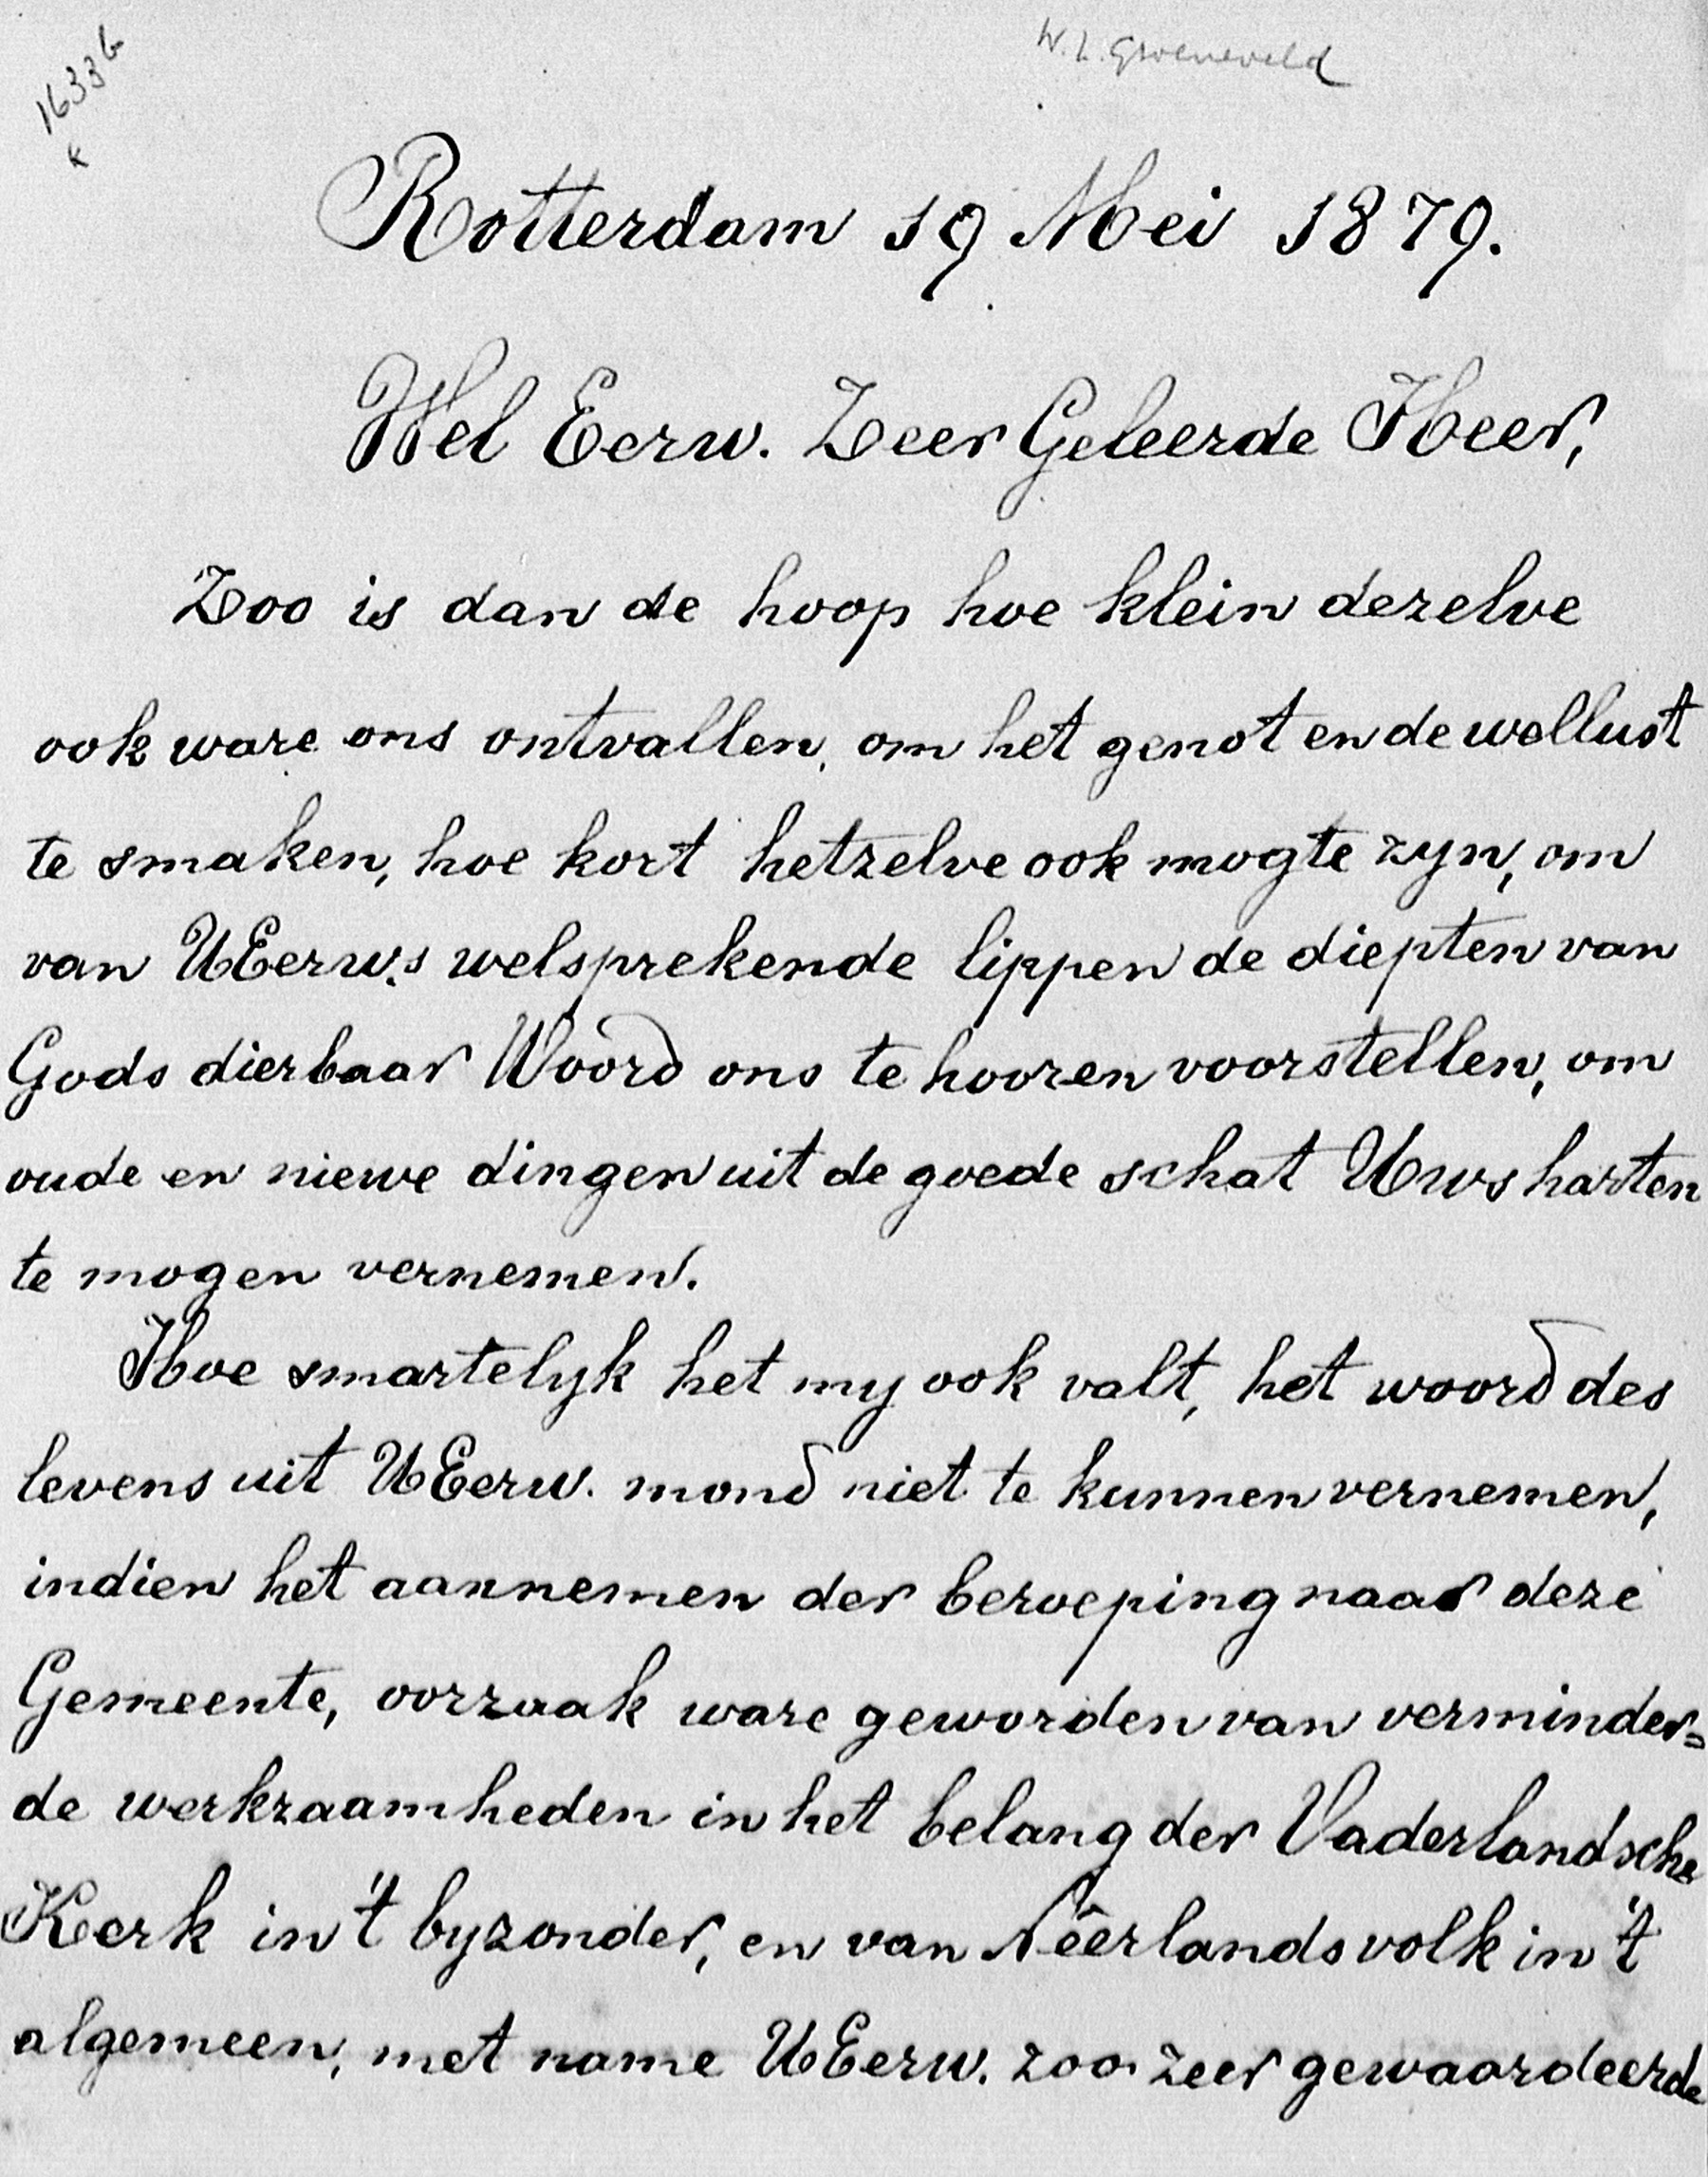 1633b
W. L. Groeneveld
Rotterdam 19 Mei 1879.
Wel Eerw. Zeer Geleerde Heer,
Zoo is dan de hoop hoe klein dezelve
ook ware ons ontvallen, om het genot en de wellust
te smaken, hoe kort hetzelve ook mogte zyn, om
van UEerw.s welsprekende lippen de diepten van
Gods dierbaar Woord ons te hooren voorstellen, om
oude en niewe dingen uit de goede schat Uws harten
te mogen vernemen.
Hoe smartelyk het my ook valt, het woord des
levens uit UEerw. mond niet te kunnen vernemen,
indien het aannemen der beroeping naar deze
Gemeente, oorzaak ware geworden van verminder=
de werkzaamheden in het belang der Vaderlandsche
Kerk in 't byzonder, en van Nêerlands volk in 't
algemeen, met name UEerw. zoo zeer gewaardeerde